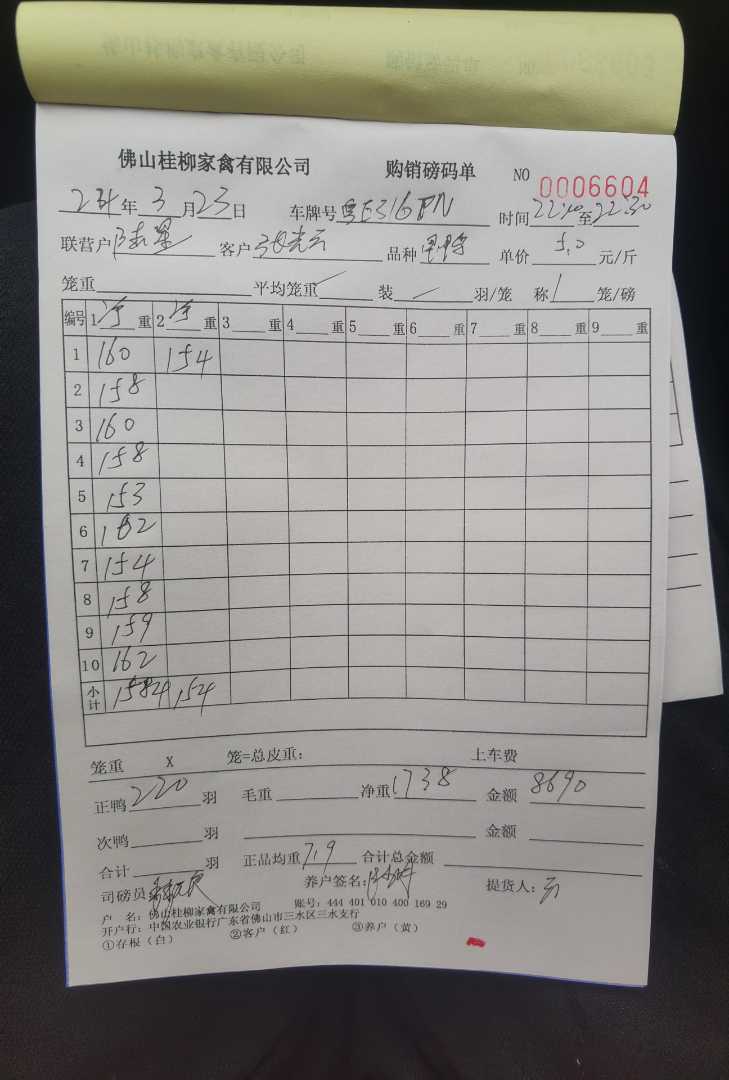 佛山桂柳家禽有限公司 购销磅码单 NO 0006604
24年 3月 23日 车牌号 粤E316PN 时间 22:10 至 22:30
联营户 客户 张光云 品种 单价 5.0 元/斤
笼重 平均笼重 / 装 / 羽/笼 称 1 笼/磅
编号 1 净 重 2 净 重 3 重 4 重 5 重 6 重 7 重 8 重 9 重
1 160 154
2 158
3 160
4 158
5 153
6 162
7 154
8 158
9 159
10 162
小计 1584 154
笼重 X 笼=总皮重: 上车费
正鸭 220 羽 毛重 净重 1738 金额 8690
次鸭 羽 金额
合计 羽 正品均重 7.9 合计总金额
司磅员 养户签名: 提货人: 云
户 名: 佛山桂柳家禽有限公司 账号: 444 401 010 400 169 29
开户行: 中国农业银行广东省佛山市三水区三水支行
①存根(白) ②客户(红) ③养户(黄)